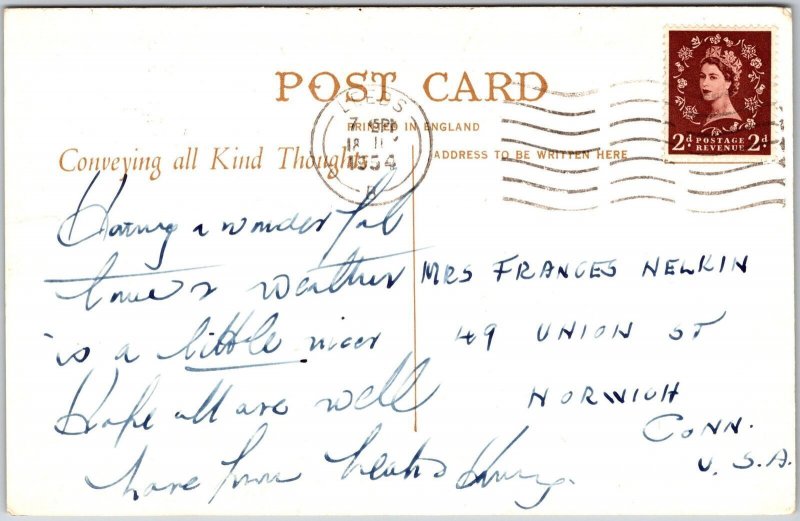 POST CARD
LEEDS
PRINTED IN ENGLAND
7
18
1954
Conveying all Kind Thoughts
ADDRESS TO BE WRITTEN HERE
2d POSTAGE 2d
REVENUE
Having a wonderful
time & weather
is a little nicer
Hope all are well
have
MRS FRANCES NELKIN
49 UNION ST
NORWICH
CONN.
U.S.A.